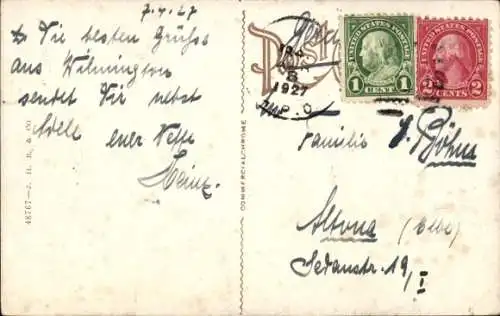 7.4.27
Die besten Grüsse
aus Wilmington
sendet Dir nebst
Adele euer Neffe
Heinz.
48767—J. H. B. & Co
COMMERCIALCHROME
Post
1927
UNITED STATES POSTAGE
1 CENT 1
UNITED STATES POSTAGE
2 CENTS 2
Familie J. Böhm
Altona (Elbe)
Sedanstr. 19/I